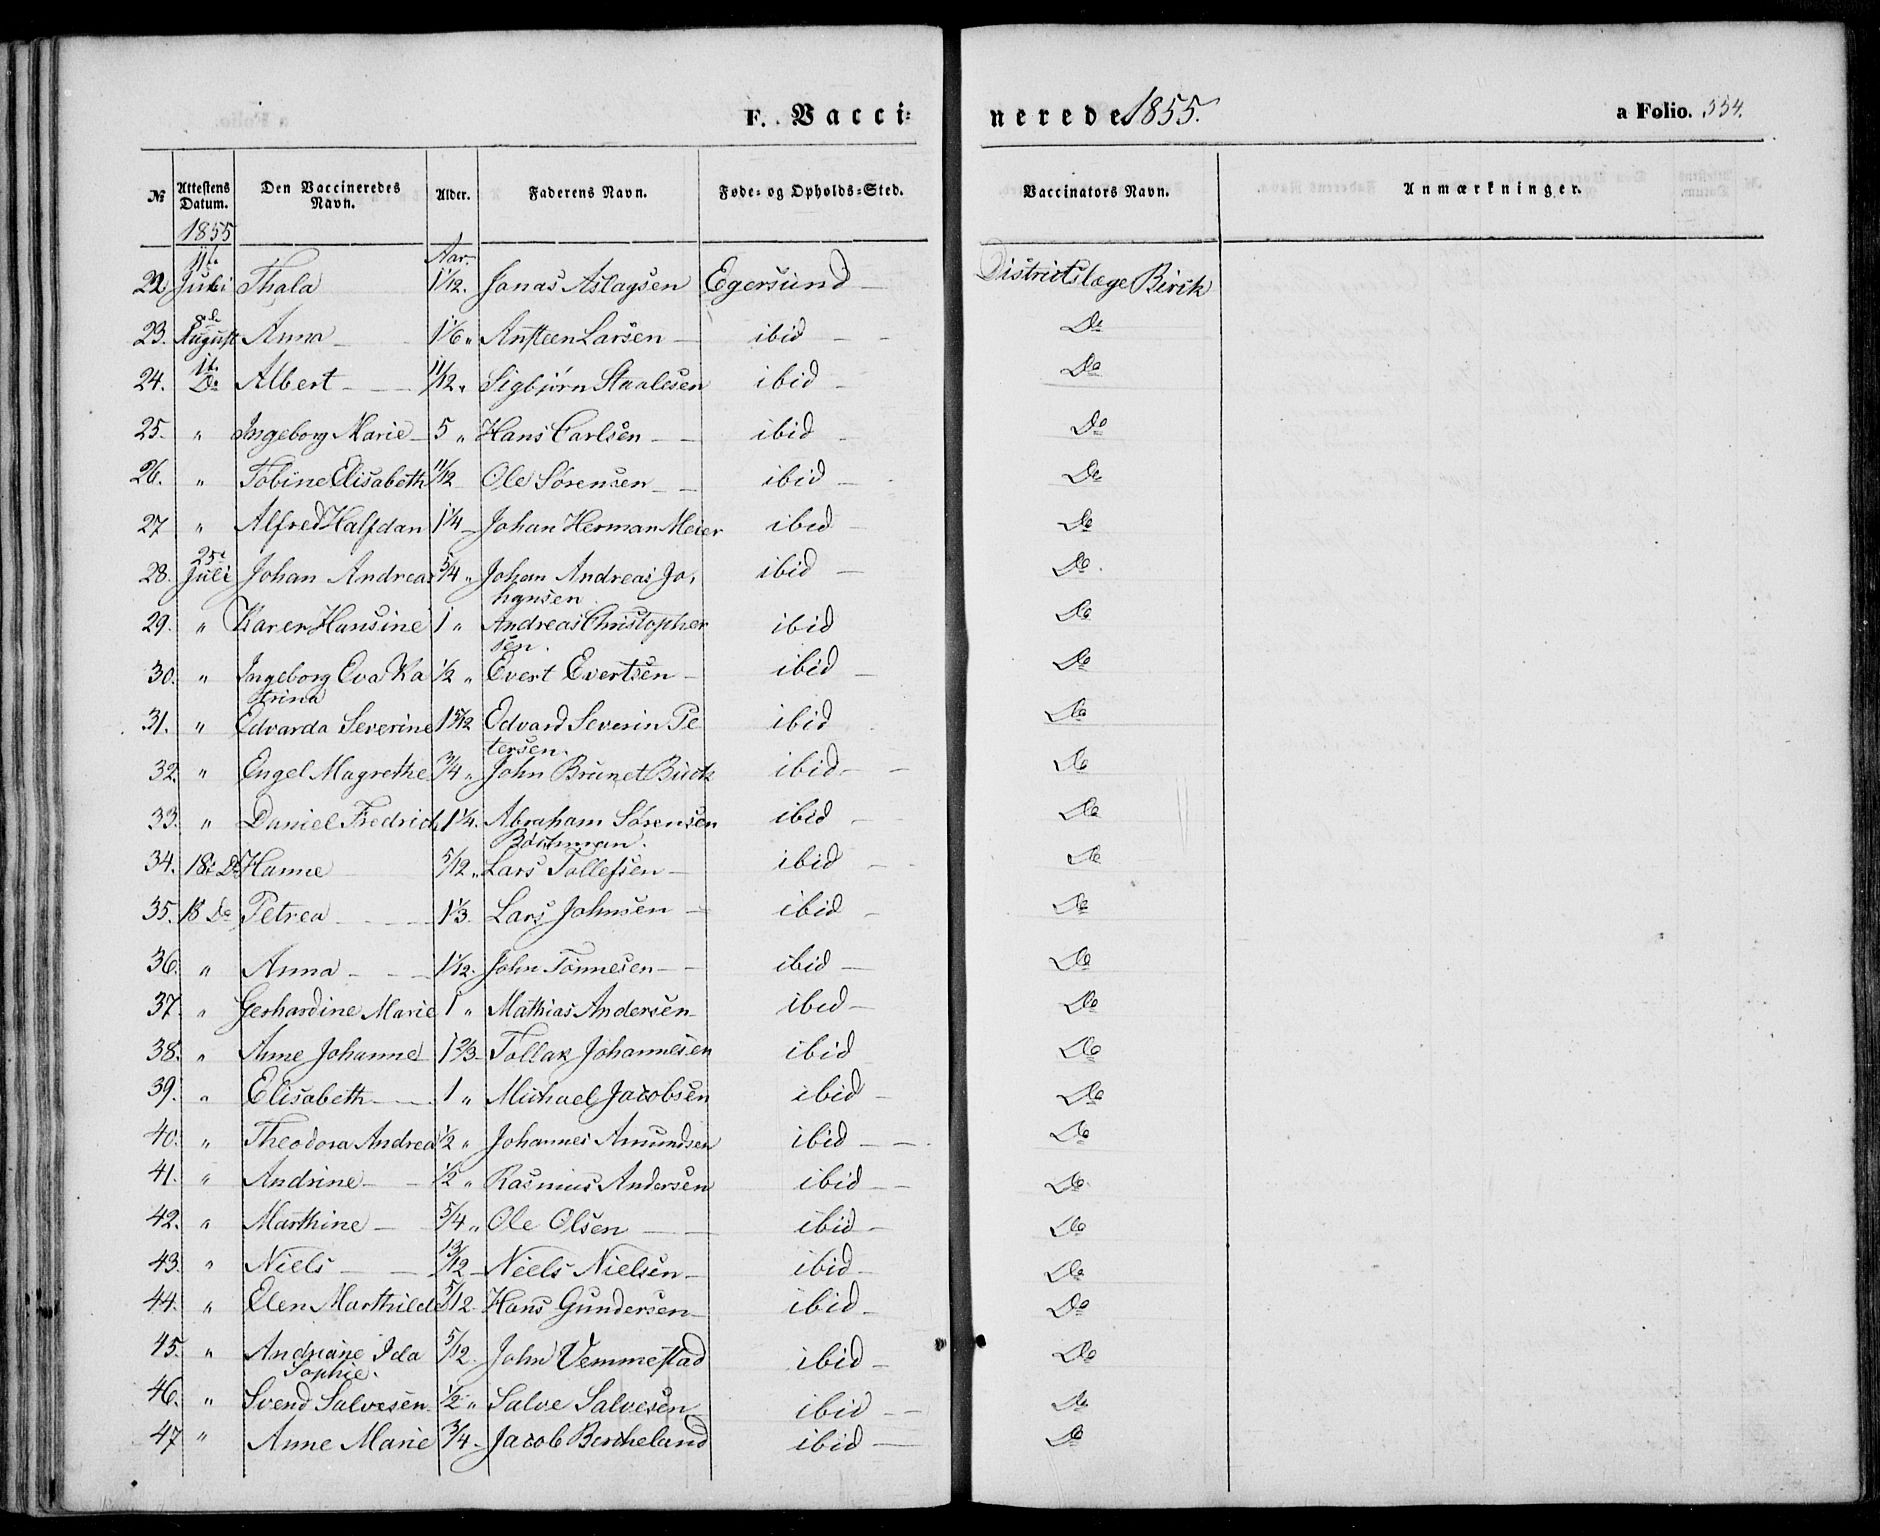 F. Vacci=nerede 1855. a Folio. 334.
№ Attestens Datum. Den Vaccineredes Navn. Alder. Faderens Navn. Føde- og Opholds-Sted. Vaccinators Navn. Anmærkninger.
1855
Aar
22 Juli Thala 1 1/12. Jonas Aslagsen Egersund — Districtslæge Birik
23. 8de August Anna 1 1/6 „ Ansteen Larsen — ibid — Do
24. Do Albert 11/12 „ Sigbjørn Staalesen ibid — Do
25. „ Ingeborg Marie 5 „ Hans Carlsen — ibid — Do
26. „ Tobine Elisabeth 11/12 Ole Sørensen — ibid — Do
27 „ Alfred Halfdan 1 1/4 Johan Herman Meier ibid — Do
28. 25e Juli Johan Andreas 5/4 „ Johan Andreas Jo-
hansen ibid — Do
29. „ Karen Hansine 1 „ Andreas Christopher
sen. ibid Do
30. „ Ingeborg Eva Ka
trina 1/2 „ Evert Evertsen — ibid — Do
31. „ Edvarda Severine 1 5/12 Edvard Severin Pe
tersen. ibid Do
32. „ Engel Magrethe 3/4 „ John Brunet Buch ibid — Do
33. „ Daniel Fredrich 1 1/4. Abraham Sørensen
Bøchman. ibid — Do
34. 18de Do Hanne 5/12 „ Lars Tollefsen — ibid — Do
35. 18 Do Petrea 1 1/3 Lars Johnsen — ibid — Do
36. „ Anna — 1 1/12. John Tönnesen — ibid — Do
37. „ Gerhardine Marie 1 „ Mathias Andersen ibid — Do
38. „ Anne Johanne 1 2/3 Tollak Johannesen ibid Do
39. „ Elisabeth 1 „ Michael Jacobsen ibid — Do
40. „ Theodora Andrea 1/2 „ Johannes Amundsen ibid — Do
41. „ Andrine — 1/2 „ Rasmus Andersen ibid — Do
42. „ Marthine — 5/4 „ Ole Olsen — ibid — Do
43. „ Niels — 13/12 Neels Nielsen — ibid — Do
44. „ Elen Marthilde 5/12 Hans Gundersen ibid — Do
45. „ Andriane Ida
Sophie. 5/12. John Vemmestad ibid — Do
46. „ Svend Salvesen 1/2 „ Salve Salvesen ibid — Do
47 „ Anne Marie 3/4 Jacob Bercheland ibid — Do